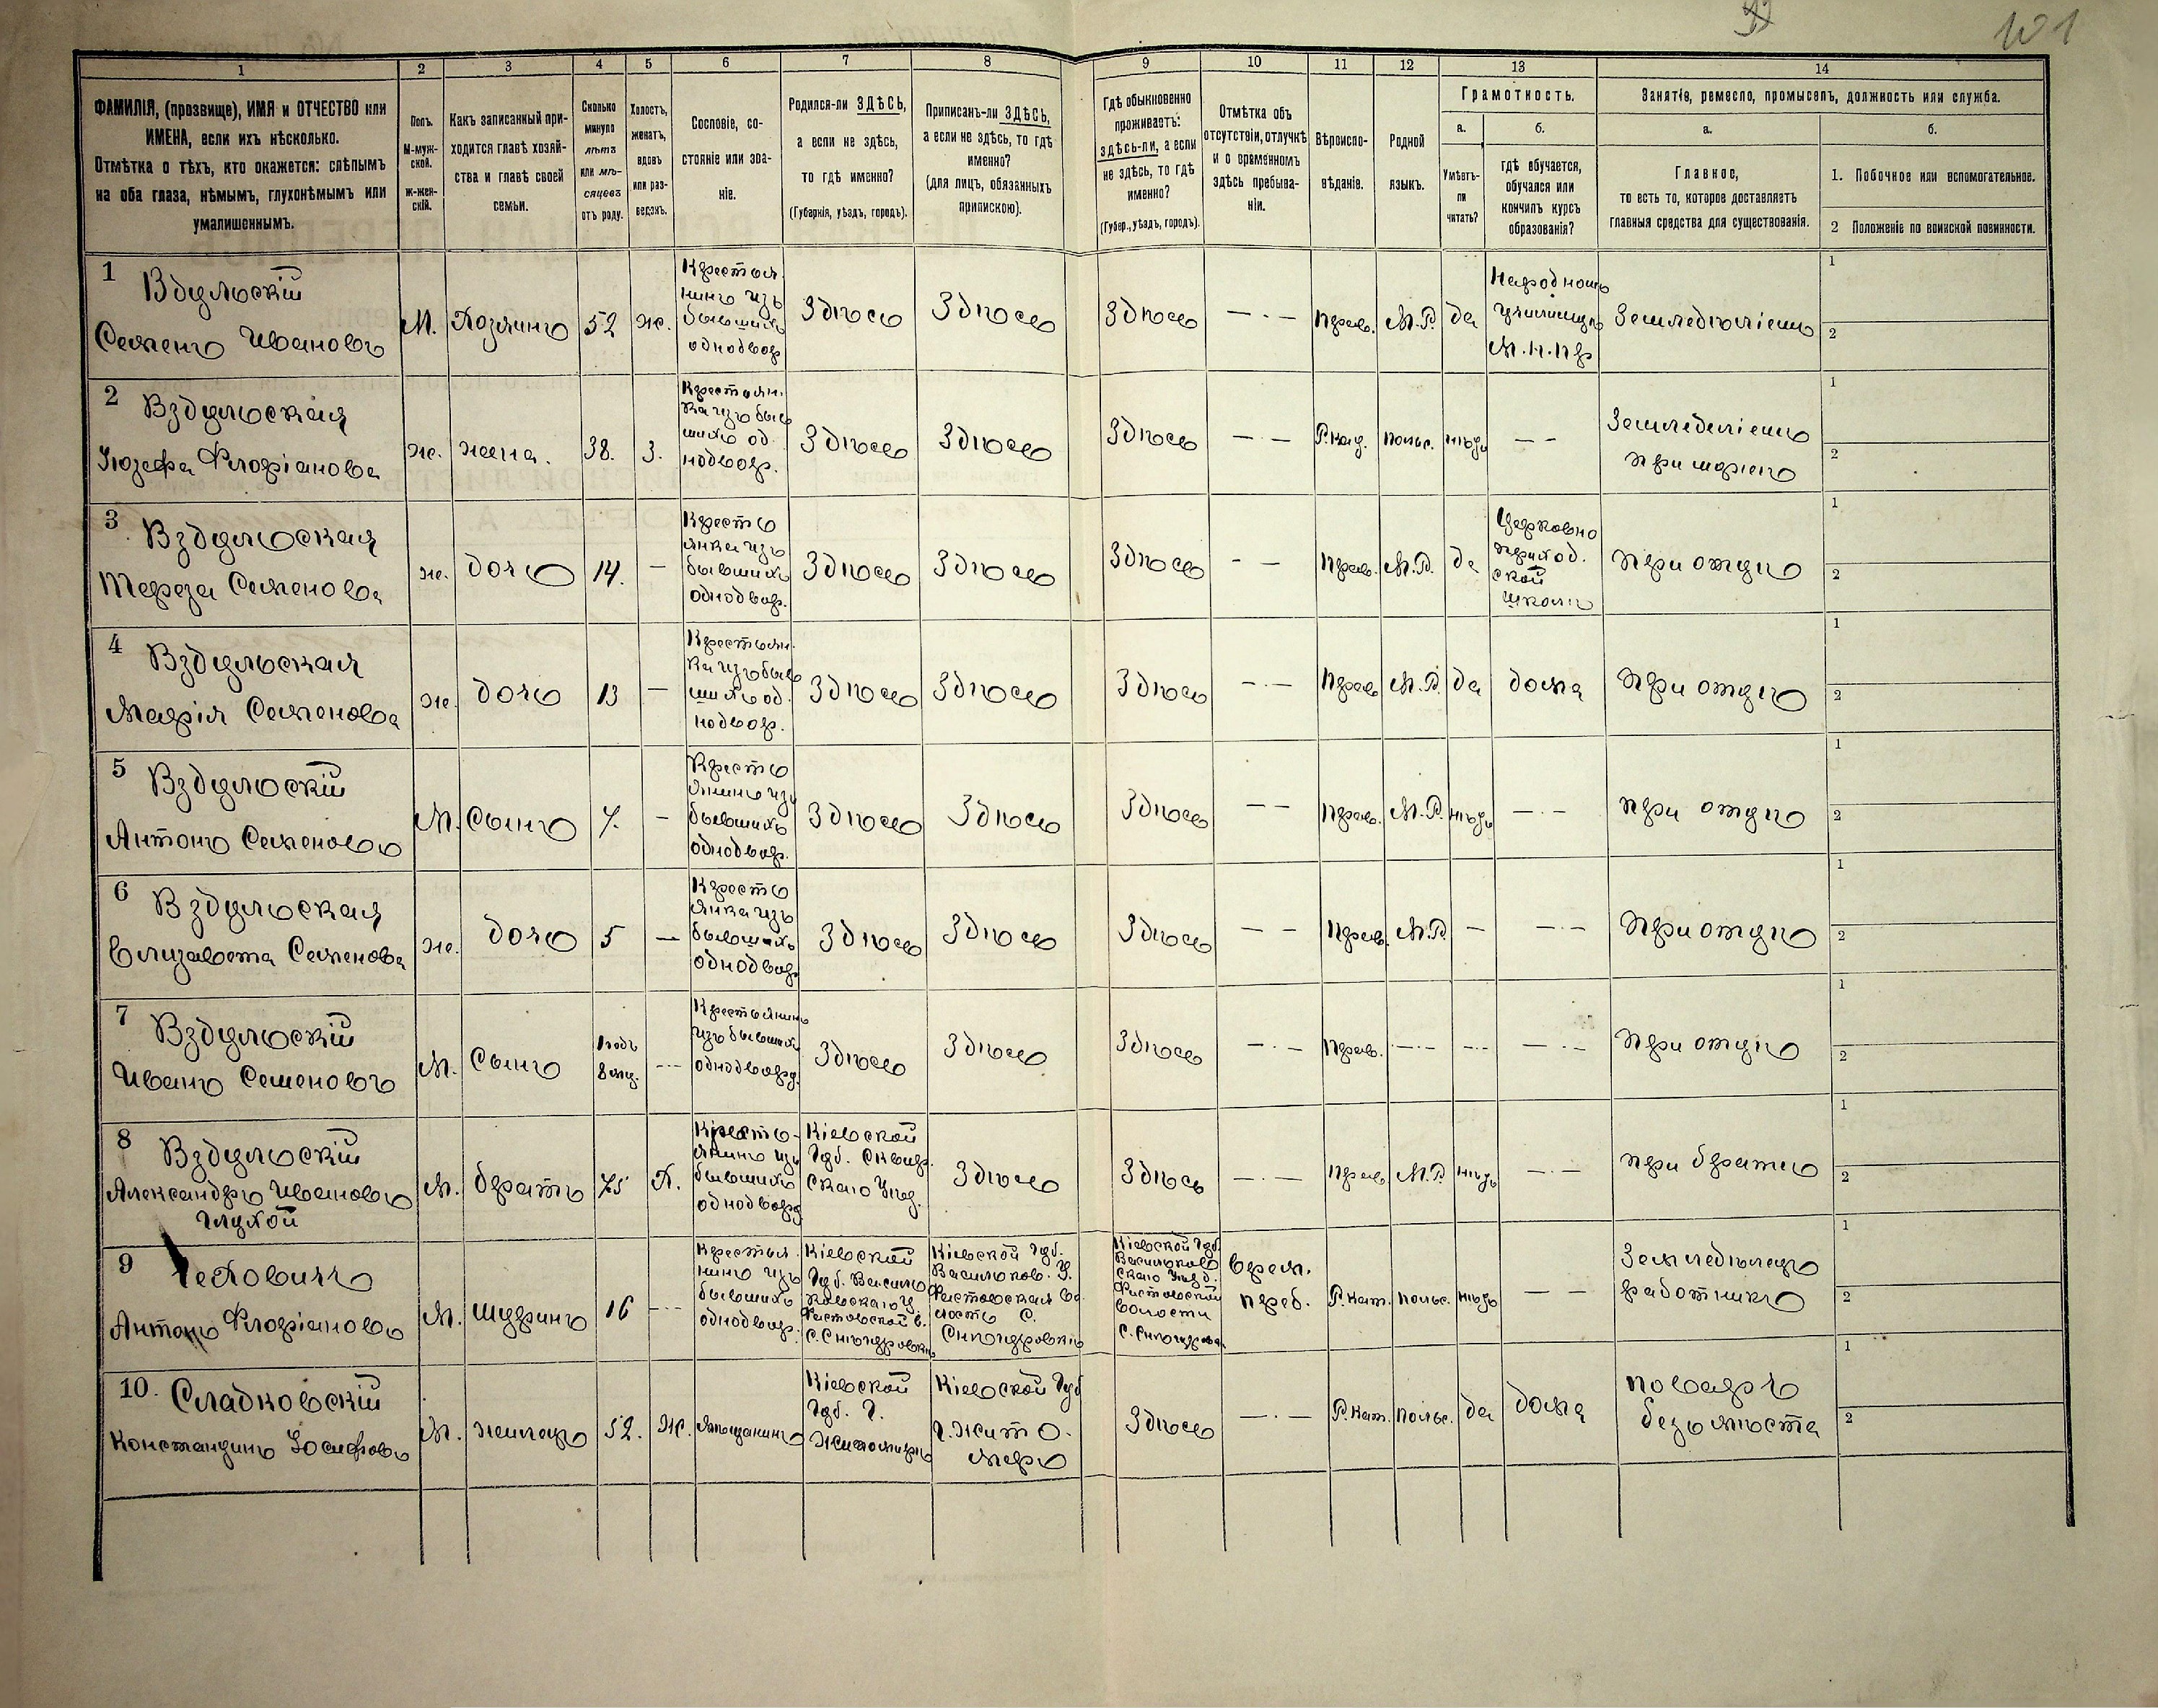 101
1
2
3
4
5
6
7
8
9
10
11
12
13
14
ФАМИЛІЯ, (прозвище), ИМЯ и ОТЧЕСТВО или
ИМЕНА, если ихъ нѣсколько.
Отмѣтка о тѣхъ, кто окажется: слѣпымъ
на оба глаза, нѣмымъ, глухонѣмымъ или
умалишеннымъ.
Полъ.
М-муж-
ской.
Ж-жен-
скій.
Какъ записанный при-
ходится главѣ хозяй-
ства и главѣ своей
семьи.
Сколько
минуло
лѣтъ
или мѣ-
сяцевъ
отъ роду.
Холостъ,
женатъ,
вдовъ
или раз-
веденъ.
Сословіе, со-
стояніе или зва-
ніе.
Родился-ли ЗДѢСЬ,
а если не здѣсь,
то гдѣ именно?
(Губернія, уѣздъ, городъ).
Приписанъ-ли ЗДѢСЬ,
а если не здѣсь, то гдѣ
именно?
(для лицъ, обязанныхъ
припискою).
Гдѣ обыкновенно
проживаетъ:
здѣсь-ли, а если
не здѣсь, то гдѣ
именно?
(Губер., уѣздъ, городъ).
Отмѣтка объ
отсутствіи, отлучкѣ
и о временномъ
здѣсь пребыва-
ніи.
Вѣроиспо-
вѣданіе.
Родной
языкъ.
Грамотность.
а.
Умѣетъ-
ли
читать?
б.
гдѣ обучается,
обучался или
кончилъ курсъ
образованія?
Занятіе, ремесло, промыселъ, должность или служба.
а.
Главное,
то есть то, которое доставляетъ
главныя средства для существованія.
б.
1. Побочное или вспомогательное.
2 Положеніе по воинской повинности.
1 Вдульскій
Семенъ Ивановъ
М.
Хозяинъ
52
ж.
Крестья
нинъ изъ
бывшихъ
однодвор
Здѣсь
Здѣсь
Здѣсь
— . —
Прав.
М.Р.
да
Народномъ
училищѣ
М.Н.Пр
Земледѣліемъ
1
2
2 Вздульская
Іюзефа Флоріанова
ж.
жена.
38.
З.
Крестьян.
ка изъ быв
шихъ од
нодвор.
Здѣсь
Здѣсь
Здѣсь
— . —
Р.кат.
польс.
нѣтъ
— —
Земледеліемъ
при мужѣ
1
2
3 Вздульская
Тереза Семенова
ж.
дочь
14.
—
Кресть
янка изъ
бывшихъ
однодвор.
Здѣсь
Здѣсь
Здѣсь
— —
Прав.
М.Р.
да
Церковно
приход.
ской
школѣ
при отцѣ
1
2
4 Вздульская
Марія Семенова
ж.
дочь
13
—
Крестьян.
ка изъ быв
шихъ од
нодвор.
Здѣсь
Здѣсь
Здѣсь
— . —
Прав
М.Р.
да
дома
при отцѣ
1
2
5 Вздульскій
Антонъ Семеновъ
М.
Сынъ
7.
—
Кресть
янинъ изъ
бывшихъ
однодвор.
Здѣсь
Здѣсь
Здѣсь
— —
Прав.
М.Р.
нѣтъ
— . —
при отцѣ
1
2
6 Вздульская
Елизавета Семенова
ж.
дочь
5
—
Кресть
янка изъ
бывшихъ
однодвор
Здѣсь
Здѣсь
Здѣсь
— —
Прав.
М.Р.
—
— . —
При отцѣ
1
2
7 Вздульскій
Иванъ Семеновъ
М.
Сынъ
1 годъ
8 мц.
— . —
Крестьянинъ
изъ бывших
однодворц.
Здѣсь
Здѣсь
Здѣсь
— . —
Прав.
— . —
— . —
— . —
При отцѣ
1
2
8 Вздульскій
Александръ Ивановъ
глухой
М.
братъ
75
Х.
Кресть-
янинъ изъ
бывшихъ
однодворц
Кіевской
Губ. Сквир.
скаго Уѣз.
Здѣсь
Здѣсь
— . —
Прав
М.Р.
нѣтъ
— . —
при братѣ
1
2
9 Чеховичъ
Антонъ Флоріановъ
М.
шуринъ
16
— . —
Крестья
нинъ изъ
бывшихъ
однодвор.
Кіевской
Губ. Василь
ковскаго У.
Фастовской в.
С. Снѣгуровкѣ
Кіевской Губ.
Васильков. У.
Фастовская во
лость С.
Снѣгуровкѣ
Кіевской Губ.
Васильков
скаго Уѣзд.
Фастовской
волости
С. Снѣгуровк
врем.
преб.
Р.кат.
польс.
нѣтъ
— —
Земледѣлец
работникъ
1
2
10. Сладковскій
Константинъ Іосифовъ
М.
жилецъ
52.
Ж.
мѣщанинъ
Кіевской
Губ. Г.
Житомиръ
Кіевской Губ
г. Жито.
меръ
Здѣсь
— . —
Р.кат.
польс.
да
дома
поваръ
безъ мѣста
1
2